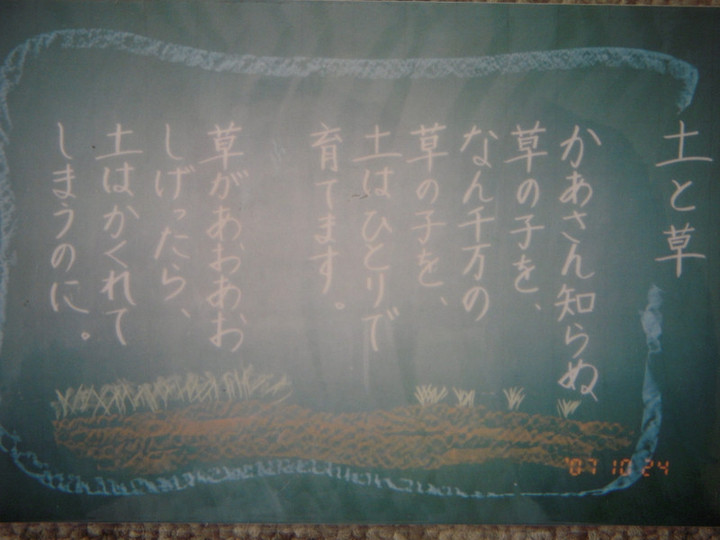 土と草
かあさん知らぬ
草の子を、
なん千万の
草の子を、
土はひとりで
育てます。
草があおあお
しげったら、
土はかくれて
しまうのに。
'07 10 24